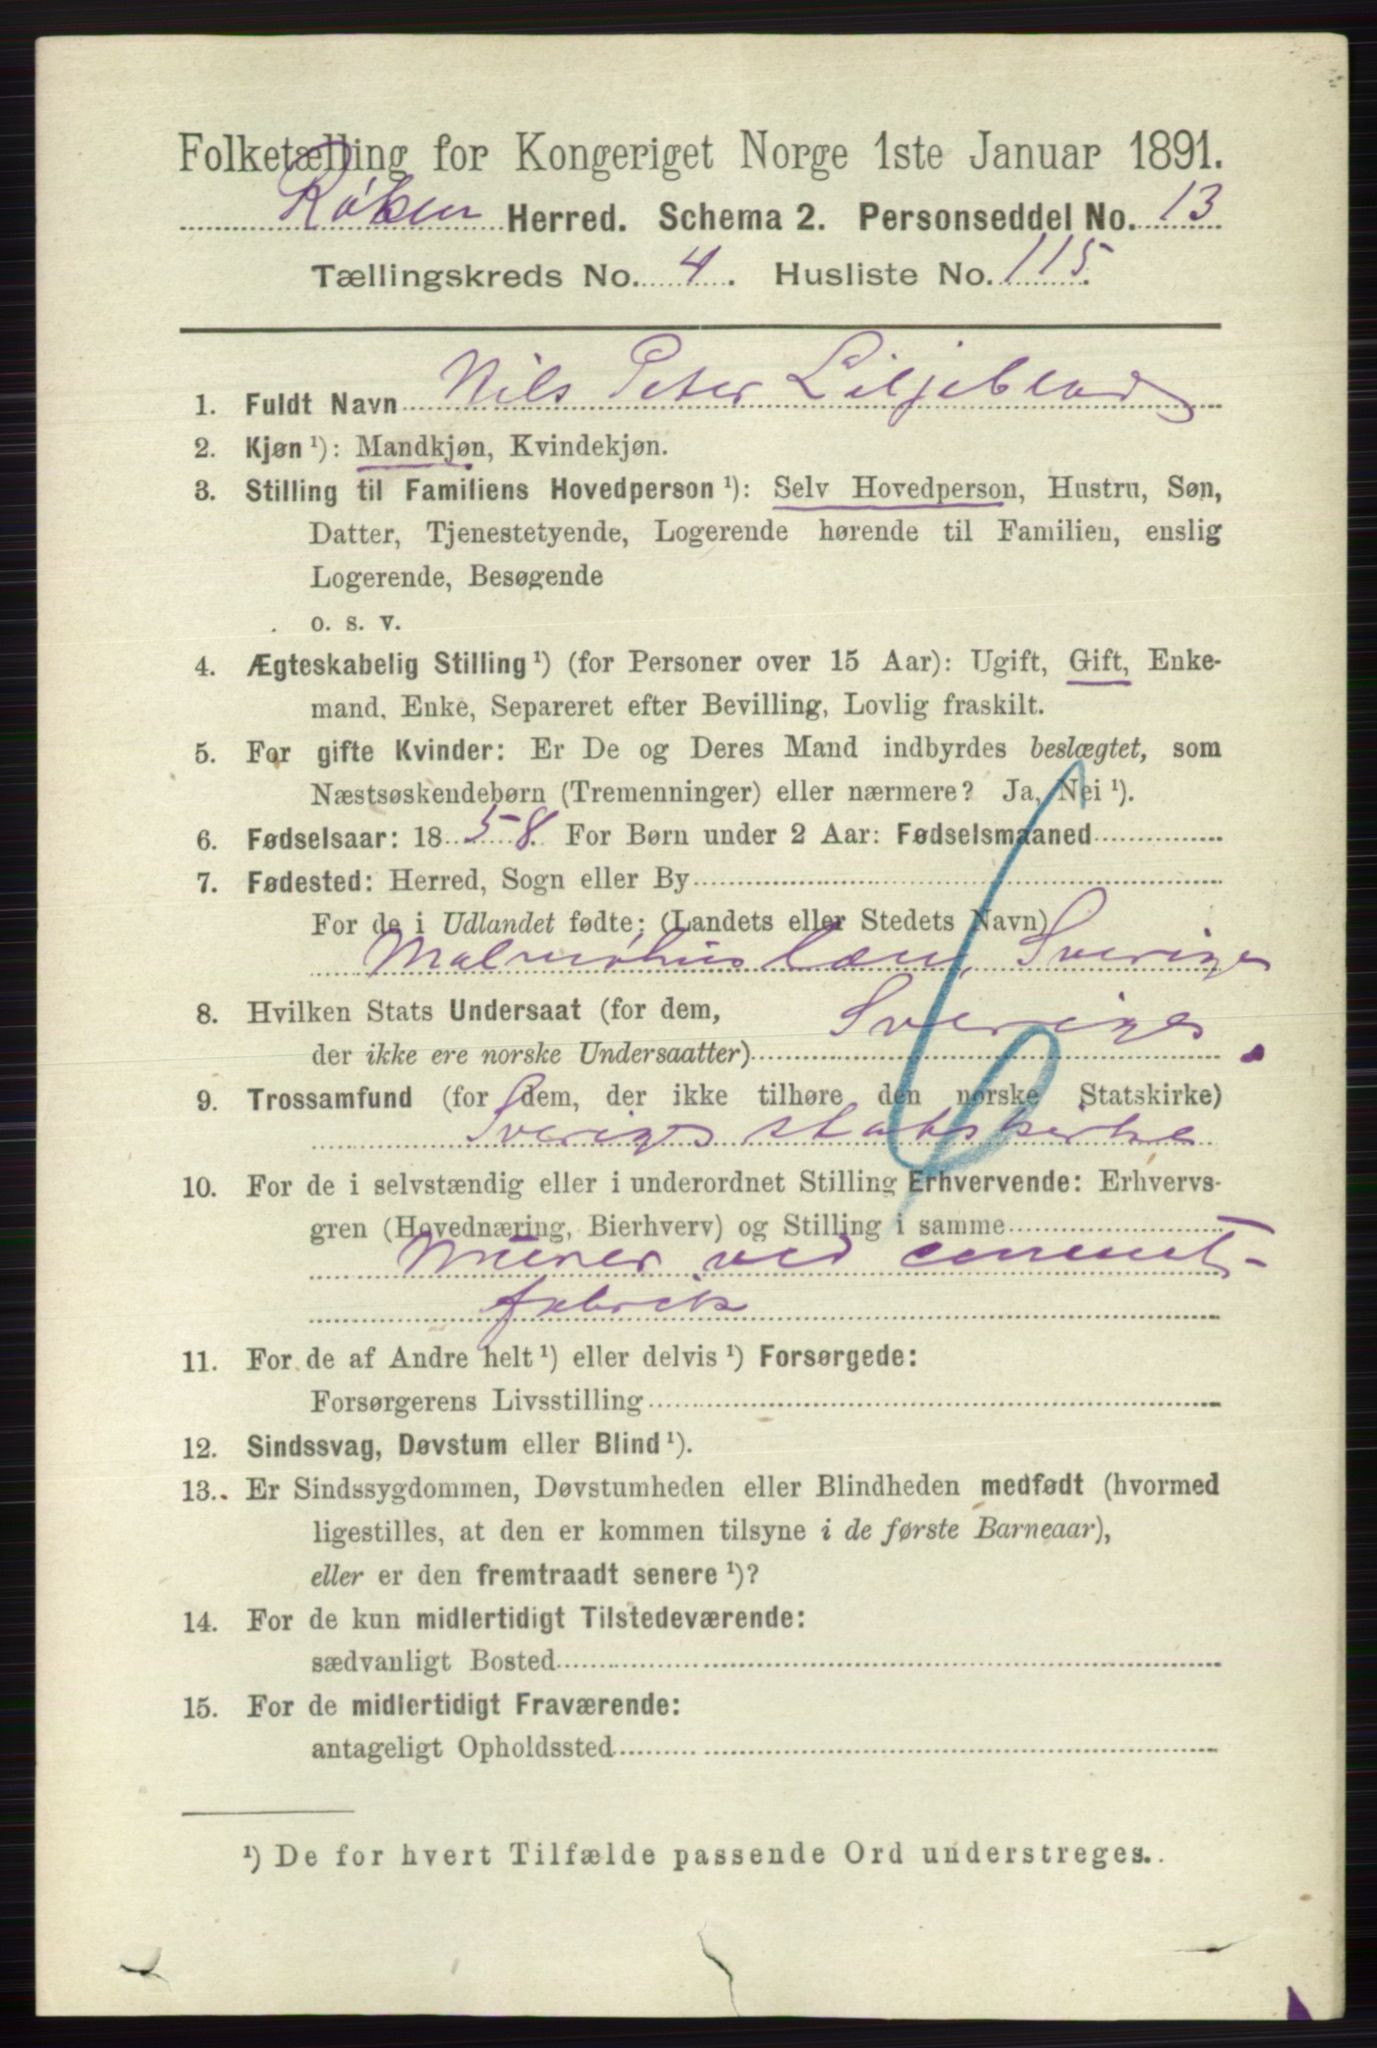 Folketælling for Kongeriget Norge 1ste Januar 1891.
Røken Herred. Schema 2. Personseddel No. 13
Tællingskreds No. 4. Husliste No. 115.
1. Fuldt Navn Nils Peter Liljeblad
2. Kjøn ¹): Mandkjøn, Kvindekjøn.
3. Stilling til Familiens Hovedperson ¹): Selv Hovedperson, Hustru, Søn,
Datter, Tjenestetyende, Logerende hørende til Familien, enslig
Logerende, Besøgende
o. s. v.
4. Ægteskabelig Stilling ¹) (for Personer over 15 Aar): Ugift, Gift, Enke-
mand, Enke, Separeret efter Bevilling, Lovlig fraskilt.
5. For gifte Kvinder: Er De og Deres Mand indbyrdes beslægtet, som
Næstsøskendebørn (Tremenninger) eller nærmere? Ja, Nei ¹).
6. Fødselsaar: 1858. For Børn under 2 Aar: Fødselsmaaned
7. Fødested: Herred, Sogn eller By
For de i Udlandet fødte: (Landets eller Stedets Navn)
Malmøhus læn, Sverige
8. Hvilken Stats Undersaat (for dem,
der ikke ere norske Undersaatter) Sveriges
9. Trossamfund (for dem, der ikke tilhøre den norske Statskirke)
Sveriges statskirke
10. For de i selvstændig eller i underordnet Stilling Erhvervende: Erhvervs-
gren (Hovednæring, Bierhverv) og Stilling i samme
Murer ved cement-
fabrik
11. For de af Andre helt ¹) eller delvis ¹) Forsørgede:
Forsørgerens Livsstilling
12. Sindssvag, Døvstum eller Blind ¹).
13. Er Sindssygdommen, Døvstumheden eller Blindheden medfødt (hvormed
ligestilles, at den er kommen tilsyne i de første Barneaar),
eller er den fremtraadt senere ¹)?
14. For de kun midlertidigt Tilstedeværende:
sædvanligt Bosted
15. For de midlertidigt Fraværende:
antageligt Opholdssted
¹) De for hvert Tilfælde passende Ord understreges.